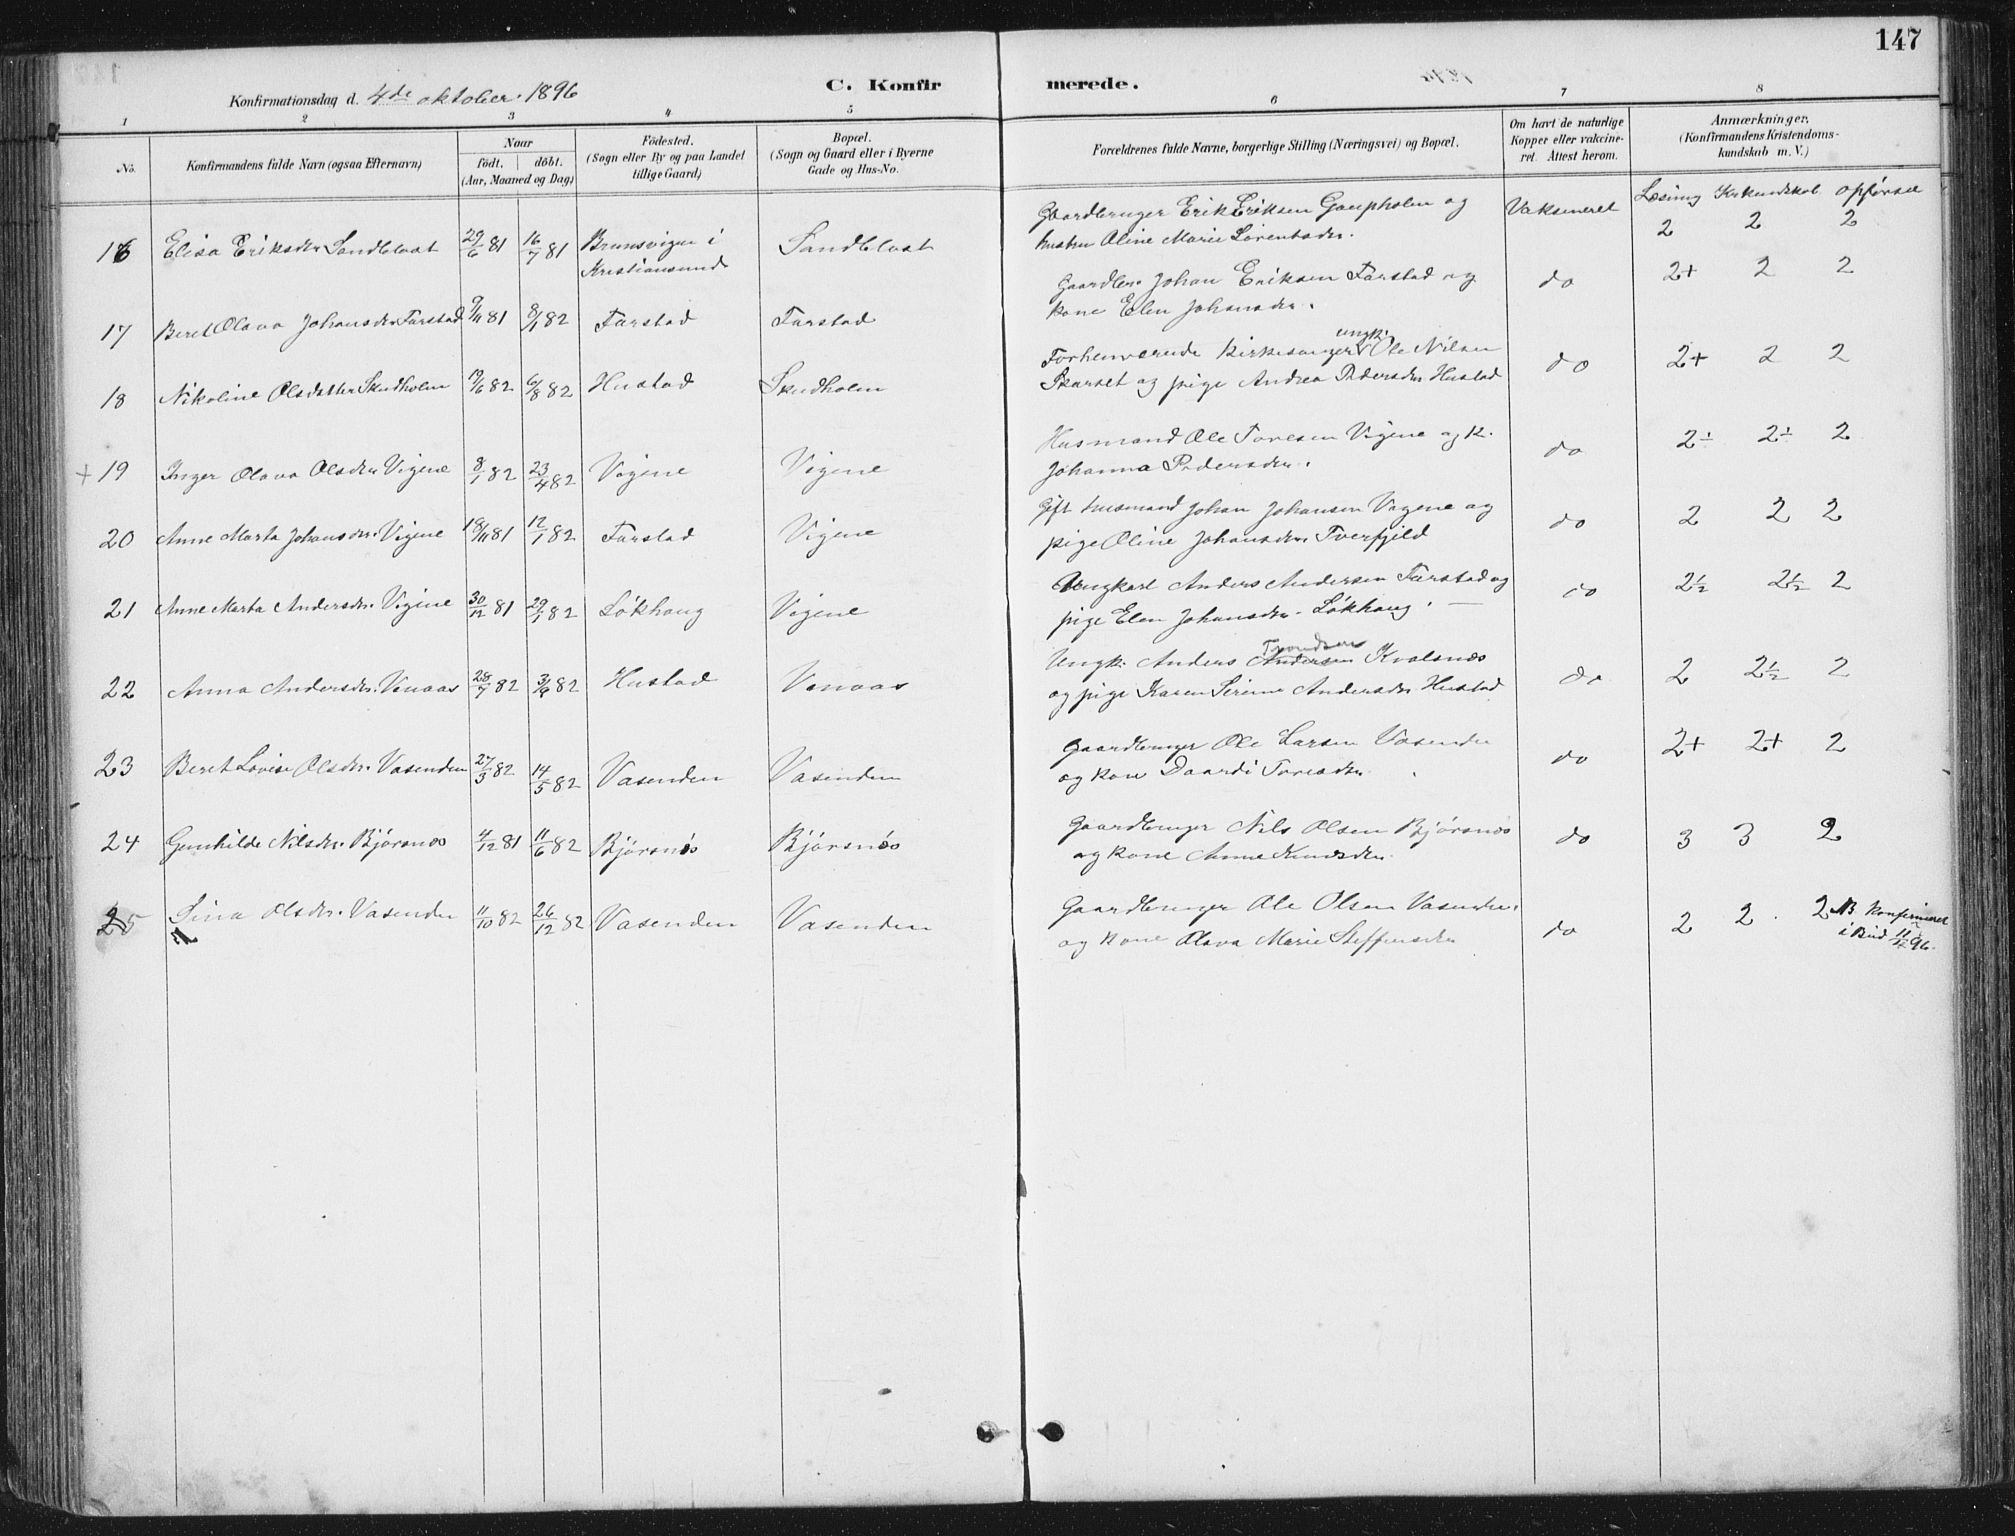 147
Konfirmationsdag d. 4de oktober 1896
C. Konfirmerede.
1 2 3 4 5 6 7 8
No.
Konfirmandens fulde Navn (ogsaa Efternavn)
Naar
født. døbt.
(Aar, Maaned og Dag)
Födested.
(Sogn eller By og paa Landet
tillige Gaard)
Bopæl.
(Sogn og Gaard eller i Byerne
Gade og Hus-No.
Forældrenes fulde Navne, borgerlige Stilling (Næringsvei) og Bopæl.
Om havt de naturlige
Kopper eller vakcine-
ret. Attest herom.
Anmærkninger.
(Konfirmandens Kristendoms-
kundskab m. V.)
Læsning Kr.kundskab opførsel
16 Elisa Eriksdr. Sandblaat 29/6 81 16/7 81 Brunsvigen i Kristiansund Sandblaat
Gaardbruger Erik Eriksen Gaupholm og
hustru Oline Marie Lorentsdr. Vaksineret 2 2 2
17 Beret Olava Johansdr. Farstad 9/11 81 8/1 82 Farstad Farstad
Gaardbr. Johan Eriksen Farstad og
kone Elen Johansdr. do 2+ 2 2
18 Nikoline Olsdatter Skudholm 19/6 82 6/8 82 Hustad Skudholm
Forhenværende Kirkesanger ungk. Ole Nilsen
Skarset og pige Andrea Pedersdr. Hustad do 2+ 2 2
+ 19 Inger Olava Olsdr. Vigene 8/1 82 23/4 82 Vigene Vigene
Husmand Ole Toresen Vigene og k.
Johanna Pedersdr. do 2÷ 2÷ 2
20 Anne Marta Johansdr. Vigene 18/11 81 12/1 82 Farstad Vigene
Gift husmand Johan Johansen Vigene og
pige Oline Johansdr. Tverfjeld do 2 2 2
21 Anne Marta Andersdr. Vigene 30/12 81 29/1 82 Løkhaug Vigene
Ungkarl Anders Andersen Farstad og
pige Elen Johansdr. Løkhaug. do 2½ 2½ 2
22 Anna Andersdr. Venaas 28/7 82 3/9 82 Hustad Venaas
Ungk. Anders Andersen Trondsen Kvalsnæs
og pige Karen Serine Andersdr. Hustad do 2 2½ 2
23 Beret Lovise Olsdr. Vasenden 27/3 82 14/5 82 Vasenden Vasenden
Gaardbruger Ole Larsen Vasenden
og kone Daardi Toresdr. do 2+ 2+ 2
24 Gunhilde Nilsdr. Bjørsnæs 4/12 81 11/6 82 Bjørsnæs Bjørsnæs
Gaardbruger Nils Olsen Bjørsnæs
og kone Anne Knudsdr. do 3 3 2
25 Sina Olsdr. Vasenden 11/10 82 26/12 82 Vasenden Vasenden
Gaardbruger Ole Olsen Vasenden
og kone Olava Marie Steffensdr. do 2 2 2 NB Konfirmeret
i Bud 11/10 96.